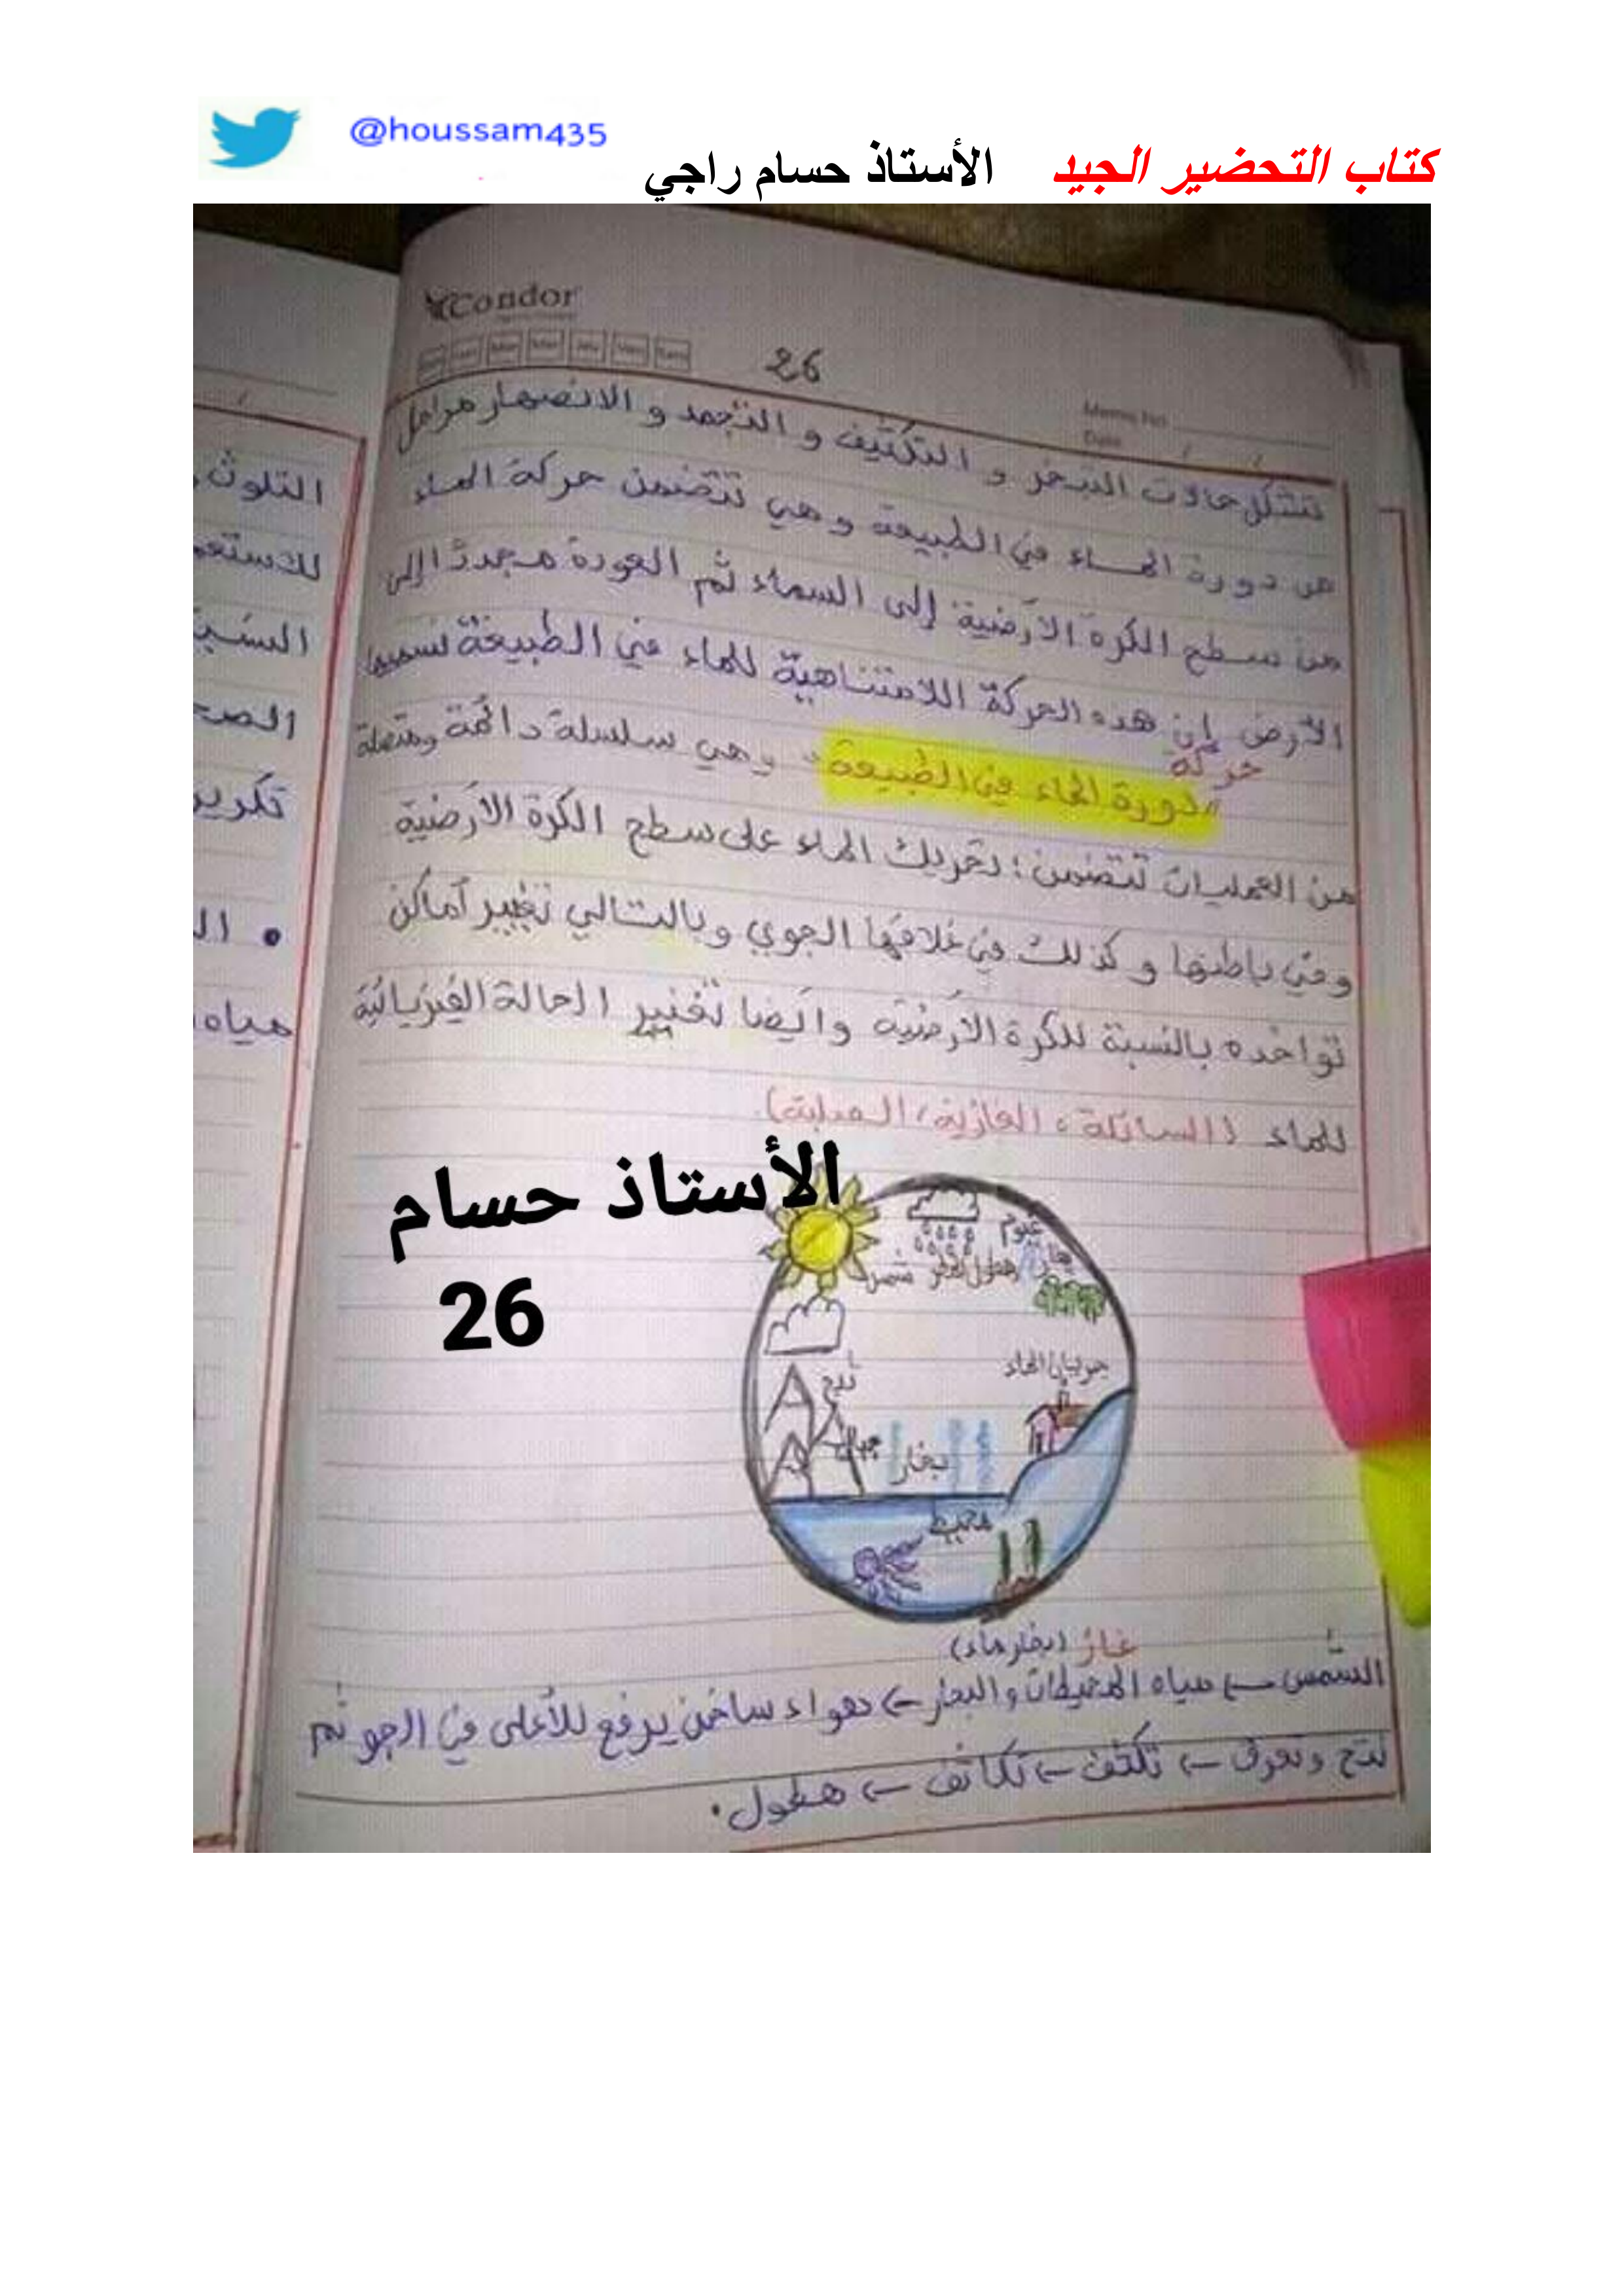 @houssam435
كتاب التحضير الجيد الأستاذ حسام راجي
Condor
26
Memo No
Date / /
تتشكل حالات التبخر و التكثيف و التجمد و الانصهار مراحل
من دورة المـاء في الطبيعة و هي تتضمن حركة المـاء
من سطح الكرة الأرضية إلى السماء ثم العودة مجددًا إلى
الأرض إن هده الحركة اللامتناهية للماء في الطبيعة نسميها
حركة
"دورة الماء في الطبيعة" وهي سلسلة دائمة ومتصلة
من العمليات تتضمن : تحريك الماء على سطح الكرة الأرضية
وفي باطنها و كذلك في غلافها الجوي وبالتالي تغيير أماكن
تواجده بالنسبة للكرة الأرضية وأيضا تغيير الحالة الفيزيائية
للماء (السائلة ، الغازية ، الصلبة).
الأستاذ حسام
26
غيوم
هطول شمس
جريان الماء
جبال بخار
محيط
غاز (بخار ماء)
الشمس ← مياه المحيطات والبحار ← هواء ساخن يرفع للأعلى في الجو ثم
نتح وتعرق ← تكثف ← تكاثف ← هطول.
التلوث
للاستعم
السب
الصح
تكرير
• ال
مياه